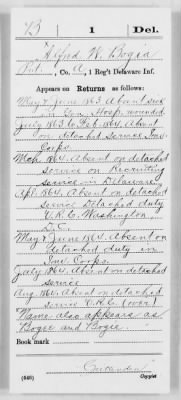 B | 1 | Del.
Wilford W. Bogia
Pvt., Co. A, 1 Reg't Delaware Inf.
Appears on Returns as follows:
May & June 1863 Absent sick
in Gen. Hosp. wounded
July 1863 to Feb. 1864 Absent
on detached service Inv.
Corps
Mch. 1864. Absent on detached
service on Recruiting
service in Delaware
Apl. 1864. Absent on detached
service Detached duty
V.R.C. Washington
D.C.
May & June 1864. Absent on
detached duty in
Inv. Corps.
July 1864. Absent on detached
service
Aug. 1864. Absent on detached
service V.R.C. (over)
Name also appears as
Bogee and Bogie
Book mark
(646)
Copyist